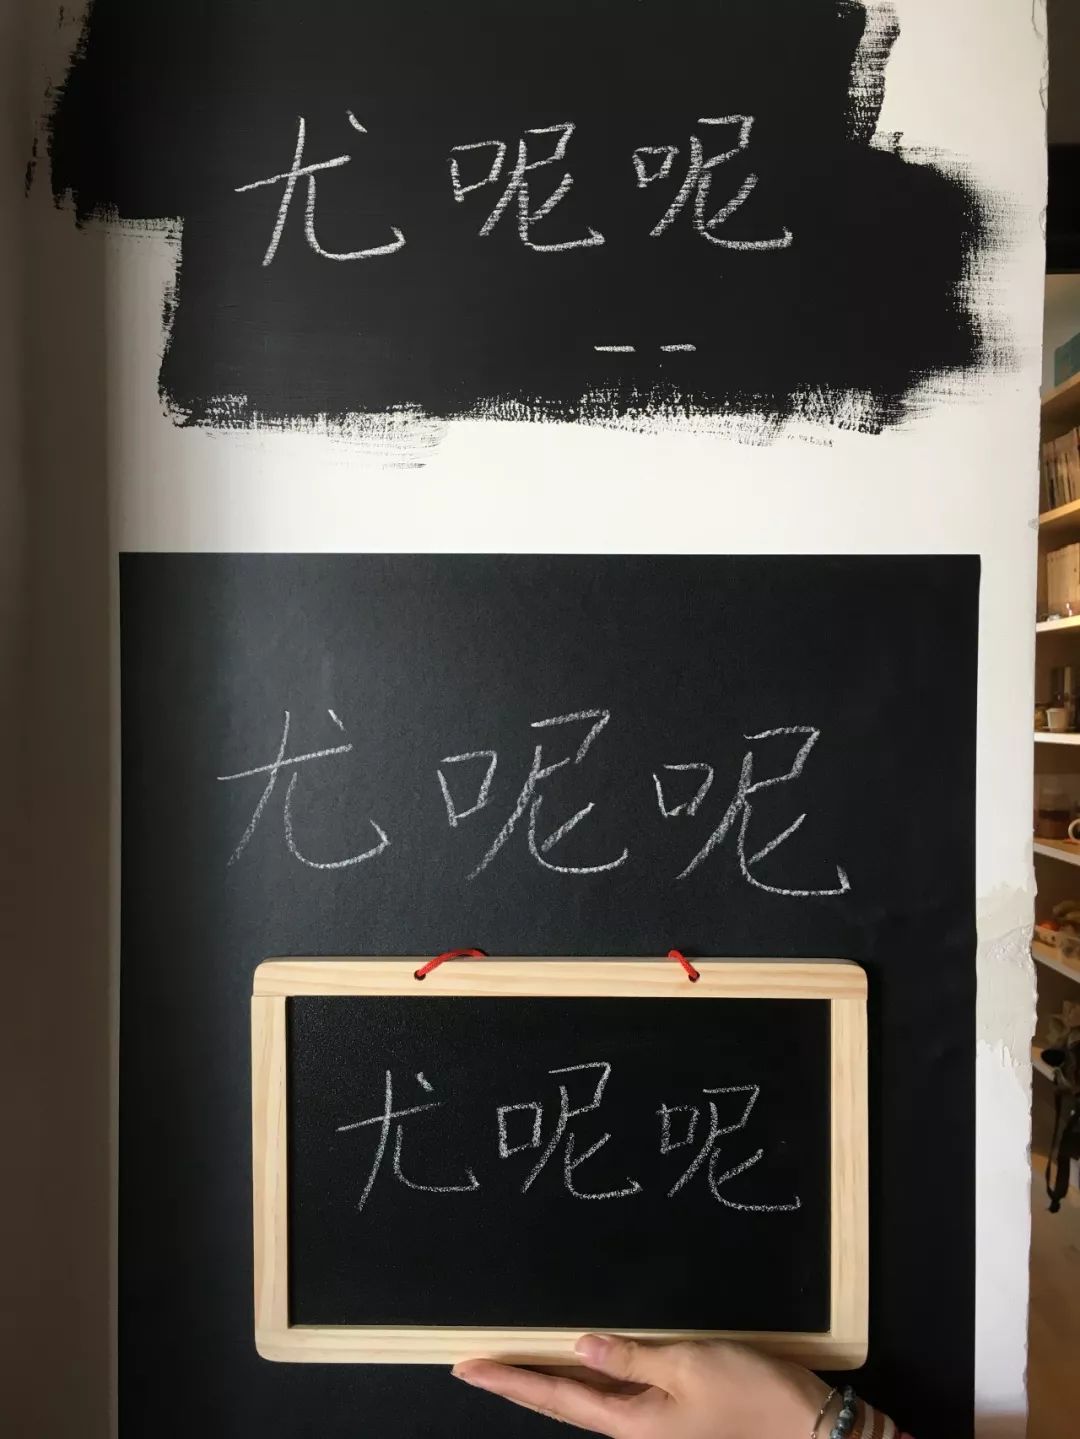 尤呢呢
尤呢呢
尤呢呢